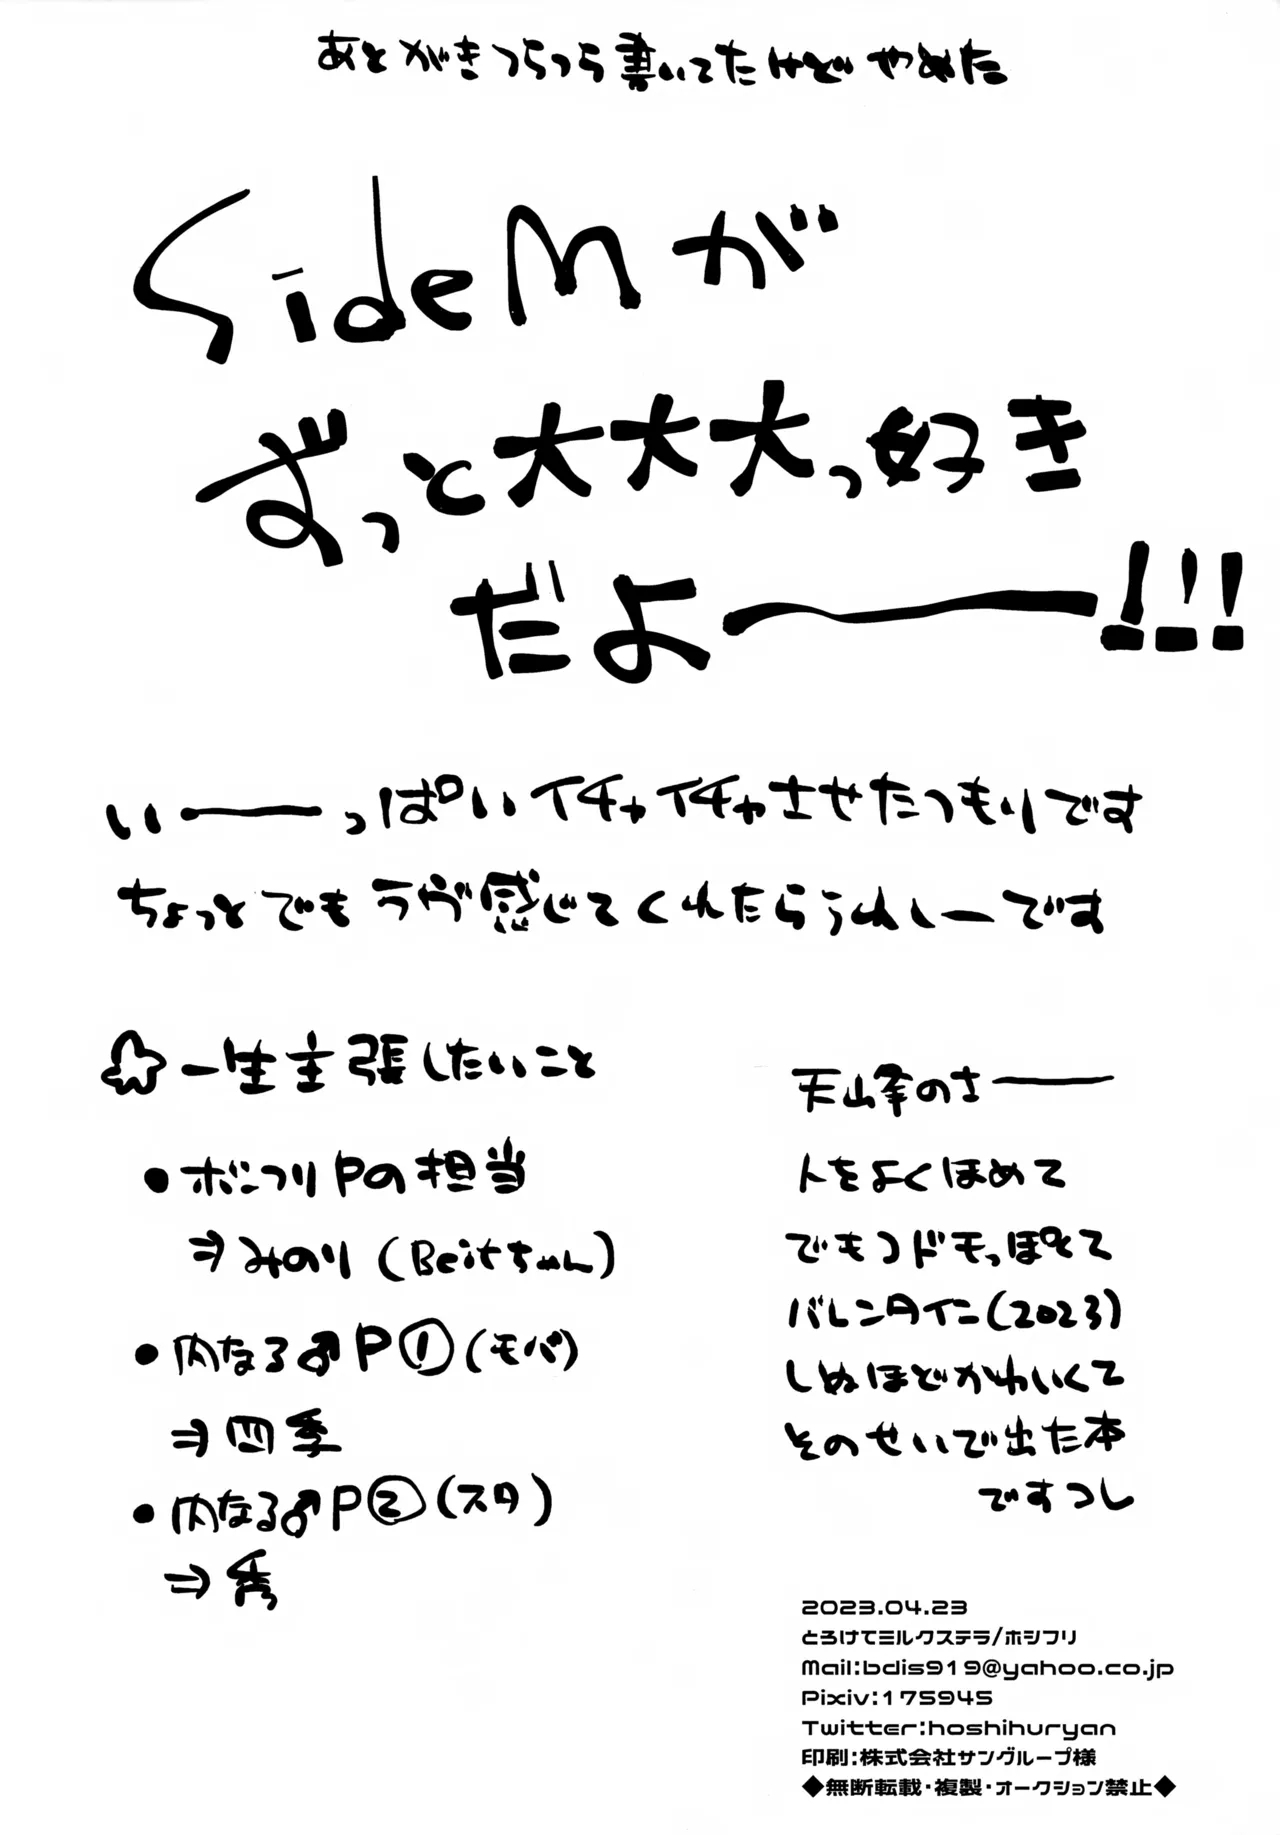 あとがきつらつら書いてたけどやめた
SideMが
ずっと大大大っ好き
だよー!!!
いーっぱいイチャイチャさせたつもりです
ちょっとでもラヴ感じてくれたらうれしーです
☆一生主張したいこと
●ホシフリPの担当
⇒みのり(Beitちゃん)
●内なる♂P①(モバ)
⇒四季
●内なる♂P②(スタ)
⇒秀
天山峯のさー
人をよくほめて
でもコドモっぽくて
バレンタイン(2023)
しぬほどかわいくて
そのせいで出た本
ですつし
2023.04.23
とろけてミルクステラ/ホシフリ
Mail:bdis919@yahoo.co.jp
Pixiv:175945
Twitter:hoshihuryan
印刷:株式会社サングループ様
◆無断転載・複製・オークション禁止◆